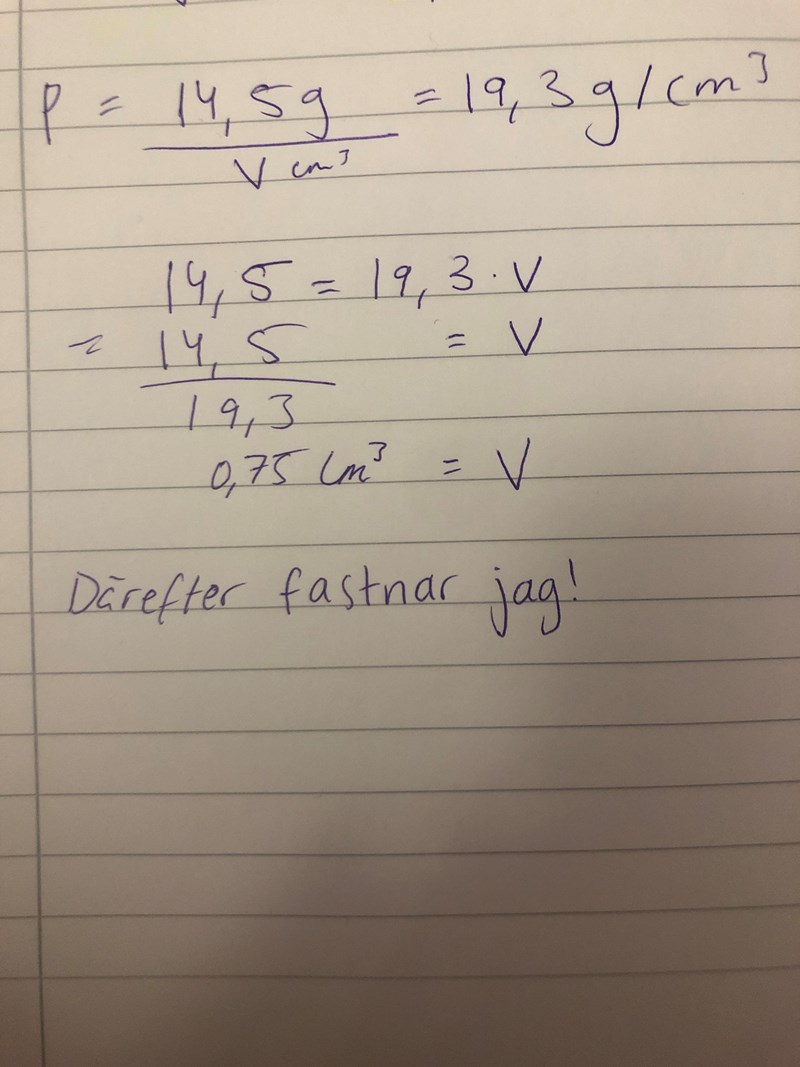 P = 14,5g = 19,3 g/cm³
V cm³
14,5 = 19,3 · V
= 14,5 = V
19,3
0,75 cm³ = V
Därefter fastnar jag!